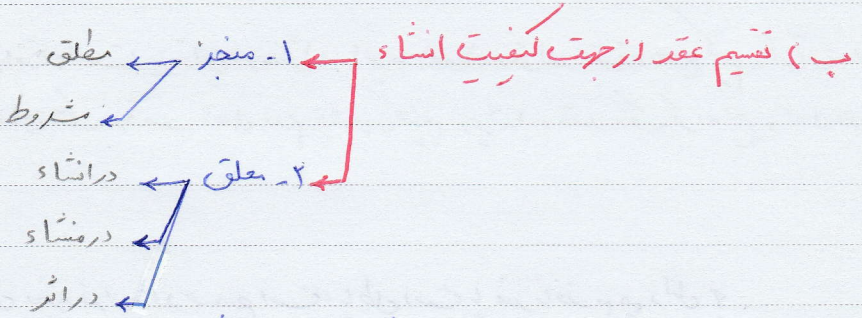 ب) تقسیم عقد از جهت کیفیت انشاء ۱- منجز مطلق
مشروط
۲- معلق در انشاء
در منشاء
در اثر